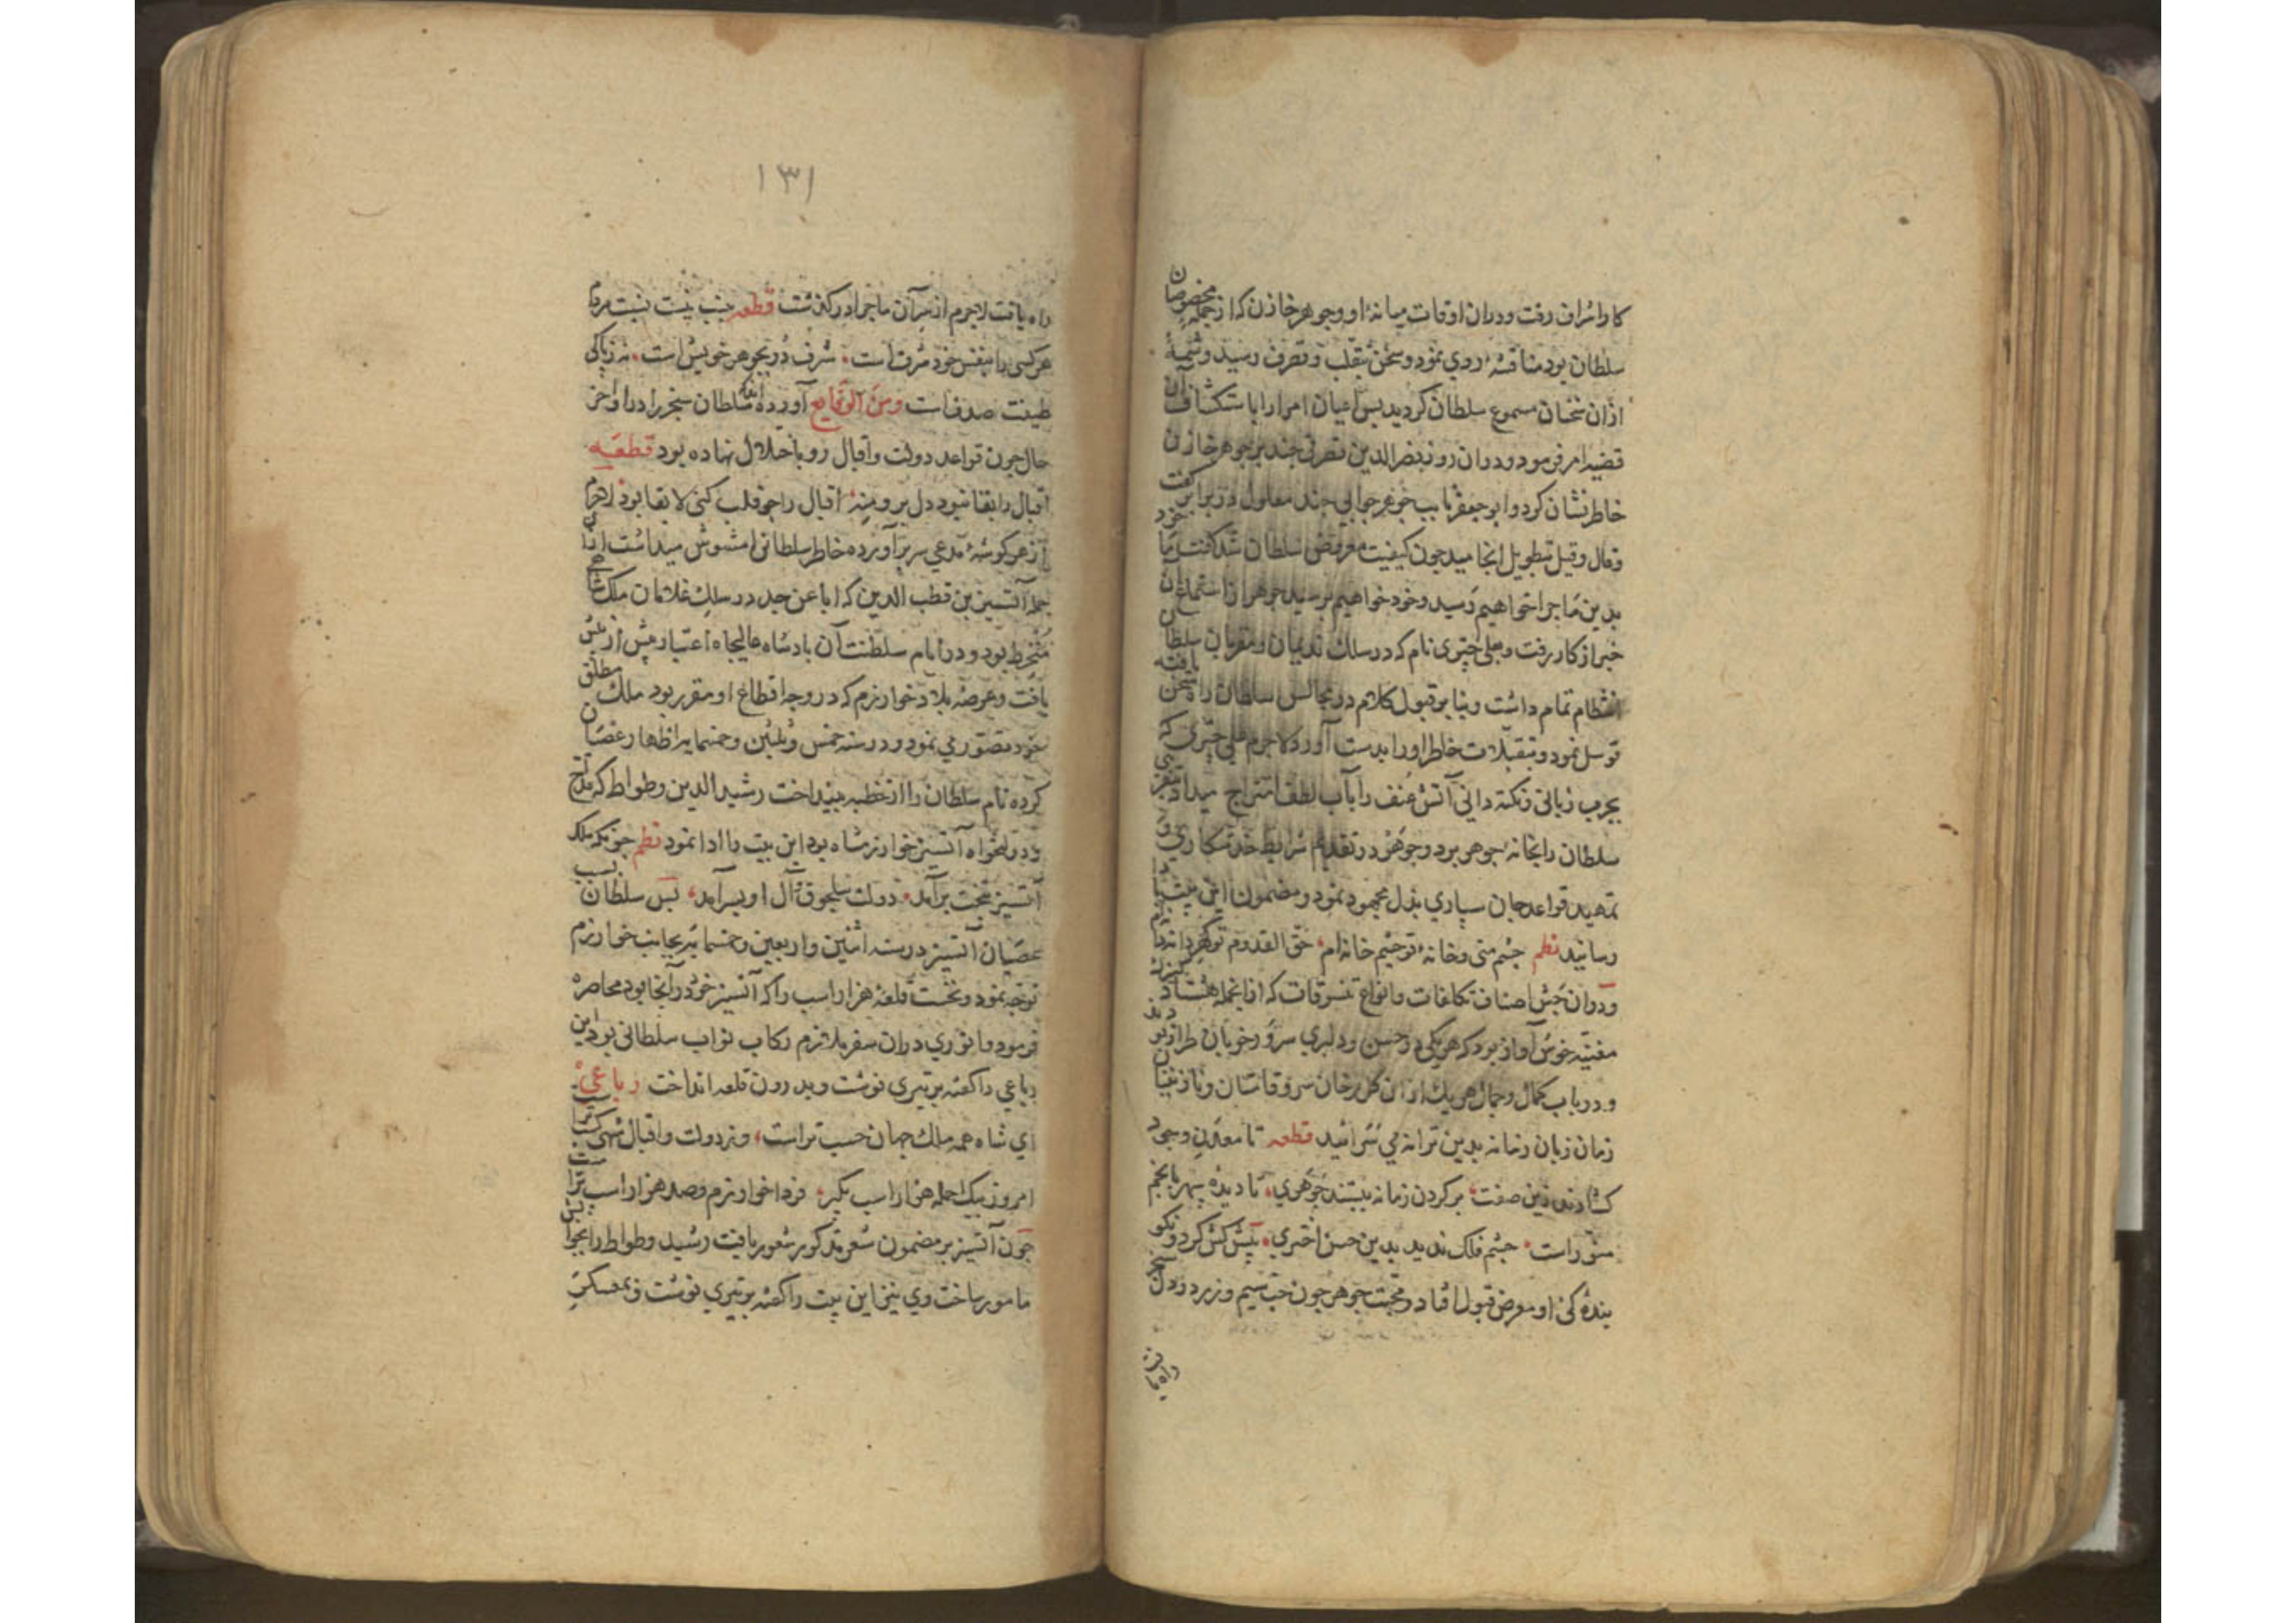 کارا شراف رفت ودران اوقات میانهٔ او وجوهر خازن که از جمله مخصوصان
سلطان بود مناقشه روی نمود وسخن بتقلب وتصرف رسید وشمهٔ
ازان سخنان مسموع سلطان کردید پس اعیان امرا را باستکشاف آن
قضیه امر فرمود ودران روز نصرالدین تصرفی چند بر جوهر خازن
خاطرنشان کرد وابوجعفر نایب جوهر جوابی چند معلول در برابر گفت
وقال وقیل بتطویل انجامید چون کیفیت معروض سلطان شد گفت ما خود
بدین ماجرا خواهیم رسید وخود خواهیم پرسید جوهر از استماع آن
خبر از کار رفت وعلی چتری نام که در سلک ندیمان ومقربان سلطان
انتظام تمام داشت وبنا بر قبول کلام در مجالس سلطان راه سخن یافته
توسل نمود وبتقبلات خاطر اورا بدست آورد لاجرم علی چتری که
بچرب زبانی ونکته دانی آتش عنف را بآب لطف امتزاج میدادی
سلطان را بخانهٔ جوهر برد وجوهر در تقدیم شرایط خدمتکاری و
تمهید قواعد جان سپاری بذل مجهود نمود ومضمون این بیت
رسانید نظم چشم منی وخانهٔ تو چشم خانه‌ام حق القدوم تو
ودران جشن اصناف تکلفات وانواع تنسوقات که ازانجمله هشتاد کنیزک
مغنیه خوش آواز بود که هر یکی در حسن ودلبری سرو خوبان طراز بودند
ودر باب کمال وجمال هر یک ازان کل رخان سروقامتان ونازنینان
زمان زبان زمانه بدین ترانه می سرائید قطعه تا معدن وجود
کشادند زین صفت بر کردن زمانه نبستند جوهری تا دیده سپهر بانجم
منور است چشم فلک ندید بدین حسن اختری پیش کش کرد و
بندهٔ کی او معرض قبول افتاد ومحبت جوهر چون حب سیم وزر در دل
راه یافت
۱۳۱
راه یافت لاجرم از سر آن ماجرا در کذشت قطعه
هر کسی را بنفس خود شرف است شرف در بجوهر خویش است نه زپاکی
طینت صدفست ومن الوقایع آورده اند که سلطان سنجر را در اواخر
حال چون قواعد دولت واقبال رو باختلال نهاده بود قطعه
اقبال را بقا نبود دل برو منه اقبال را چو قلب کنی لا بقا بود لاجرم
از هر کوشهٔ مدعی سر برآورده خاطر سلطانی را مشوش میداشت ازان
جمله آتسیز بن قطب الدین که ابا عن جد در سلک غلامان ملک شاهی
منخرط بود ودر ایام سلطنت آن بادشاه عالیجاه اعتبار بیش از پیش
یافت وعرصهٔ بلاد خوارزم که در وجه اقطاع او مقرر بود ملک مطلق
خود تصور می نمود ودر سنه خمس وثلثین وخمسمایه اظهار عصیان
کرده نام سلطان را از خطبه بینداخت رشید الدین وطواط که مداح
ودولتخواه آتسیز خوارزمشاه بود این بیت را ادا نمود نظم چونکه ملک
آتسیز بتخت برآمد دولت سلجوق وآل او بسر آمد پس سلطان بسبب
عصیان آتسیز در سنه اثنین واربعین وخمسمایه بجانب خوارزم
توجه نمود ونخست قلعه هزار اسب را که آتسیز خود در آنجا بود محاصره
فرمود وانوری دران سفر ملازم رکاب نواب سلطانی بود این
رباعی را کفته بر تیری نوشت وبدرون قلعه انداخت رباعی
ای شاه همه ملک جهان حسب تراست وز دولت واقبال شهی کسب تراست
امروز بیک حمله هزار اسب بکیر فردا خوارزم وصد هزار اسب تراست
چون آتسیز بر مضمون شعر مذکور شعور یافت رشید وطواط را بجواب
مامور ساخت وی نیز این بیت را کفته بر تیری نوشت وبمعسکر